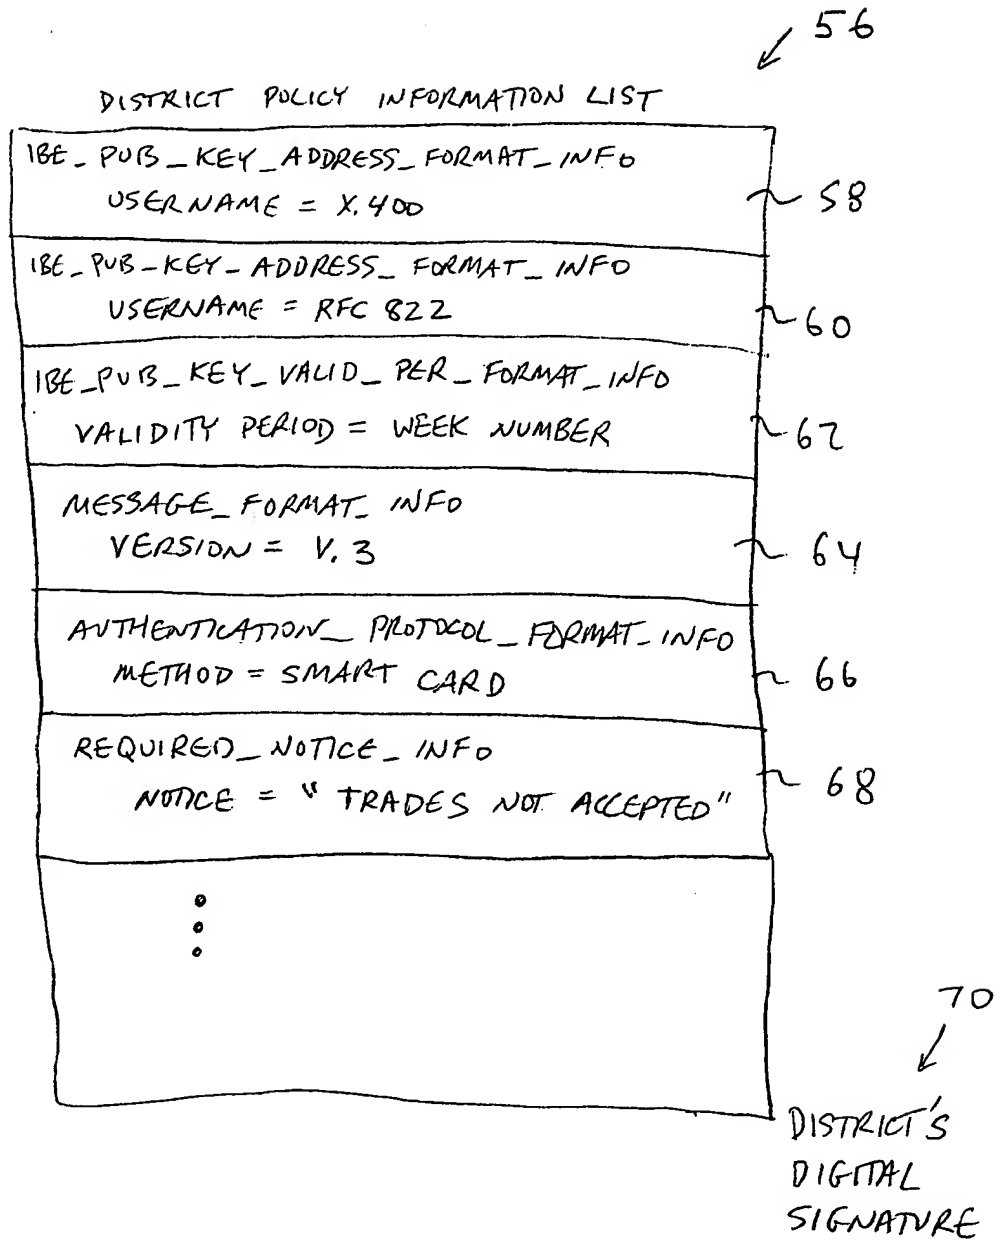 56
DISTRICT POLICY INFORMATION LIST
IBE_PUB_KEY_ADDRESS_FORMAT_INFO
USERNAME = X.400
58
IBE_PUB_KEY_ADDRESS_FORMAT_INFO
USERNAME = RFC 822
60
IBE_PUB_KEY_VALID_PER_FORMAT_INFO
VALIDITY PERIOD = WEEK NUMBER
62
MESSAGE_FORMAT_INFO
VERSION = V.3
64
AUTHENTICATION_PROTOCOL_FORMAT_INFO
METHOD = SMART CARD
66
REQUIRED_NOTICE_INFO
NOTICE = "TRADES NOT ACCEPTED"
68
70
DISTRICT'S
DIGITAL
SIGNATURE